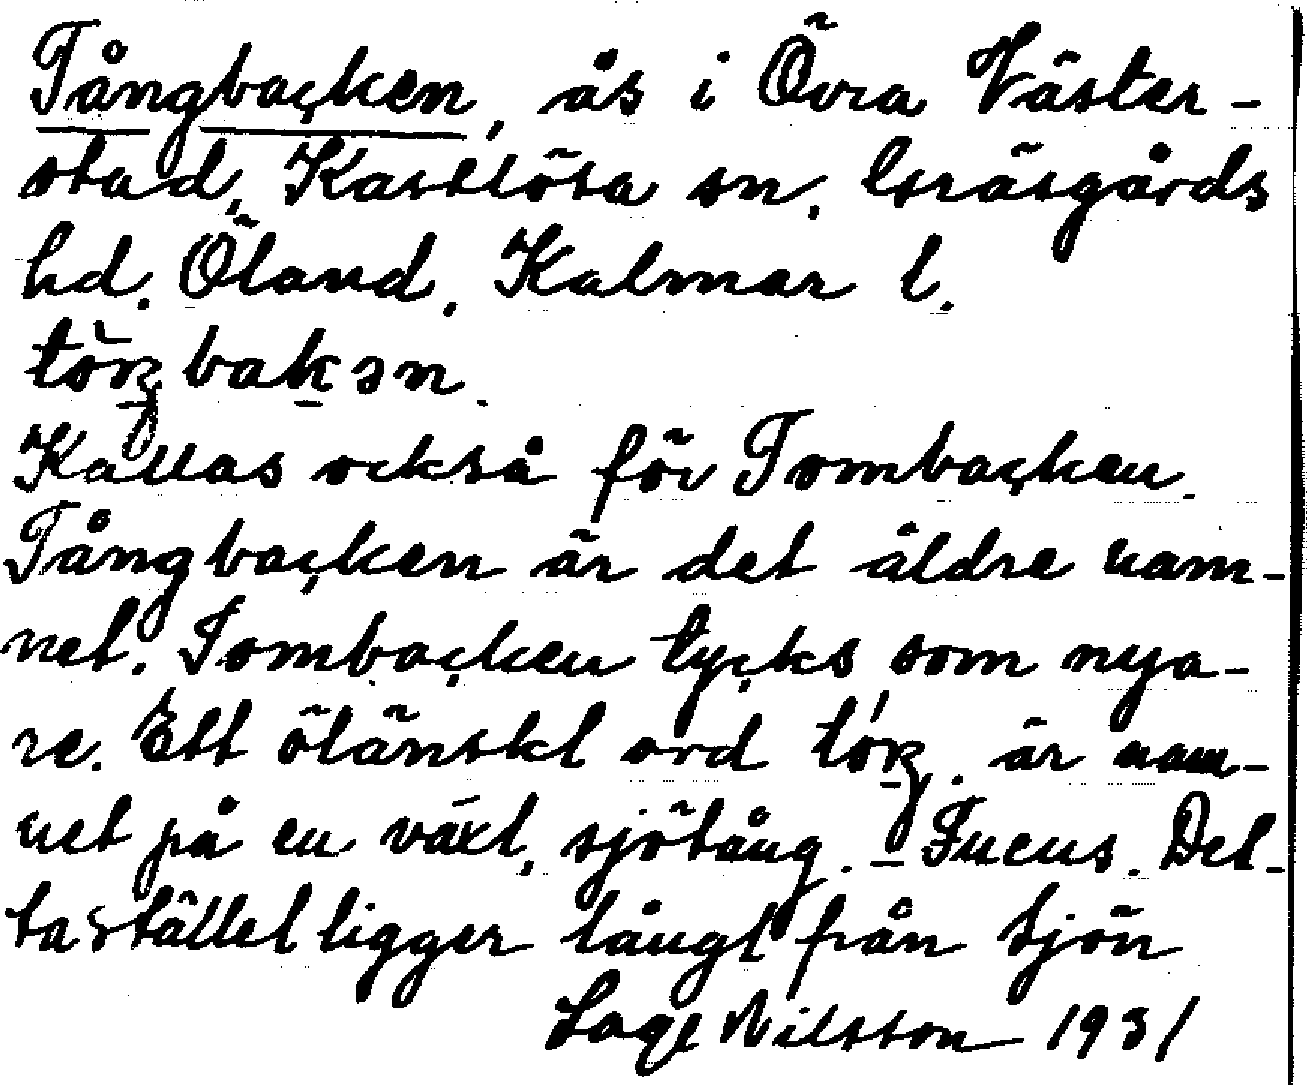 Tångbacken, ås i Övra Väster-
stad, Kastlösa sn. Gräsgårds
hd. Öland. Kalmar l.
Kallas också för Tombacken.
Tångbacken är det äldre nam-
net. Tombacken tycks som nya-
re. Ett öländskt ord är nam-
net på en växt, sjötång. – Fucus. Det-
ta stället ligger långt från sjön
Nilsson 1931